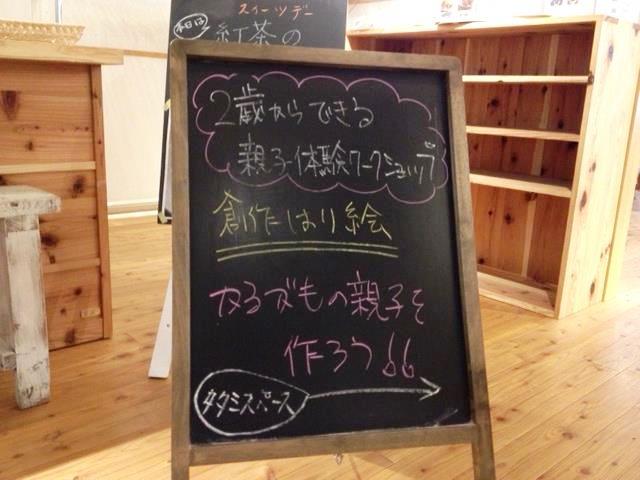 スイーツデー
本日は
紅茶の
2歳からできる
親子体験ワークショップ
創作はり絵
かるがもの親子を
作ろう!!
タタミスペース